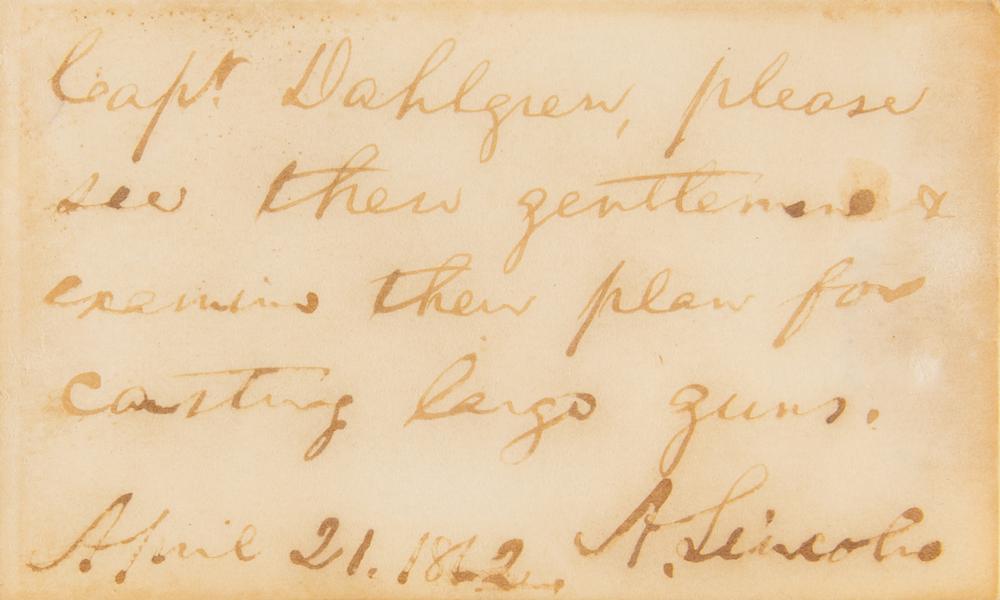 Capt. Dahlgren, please
see these gentlemen &
examine their plan for
casting large guns.
April 21. 1862. A. Lincoln